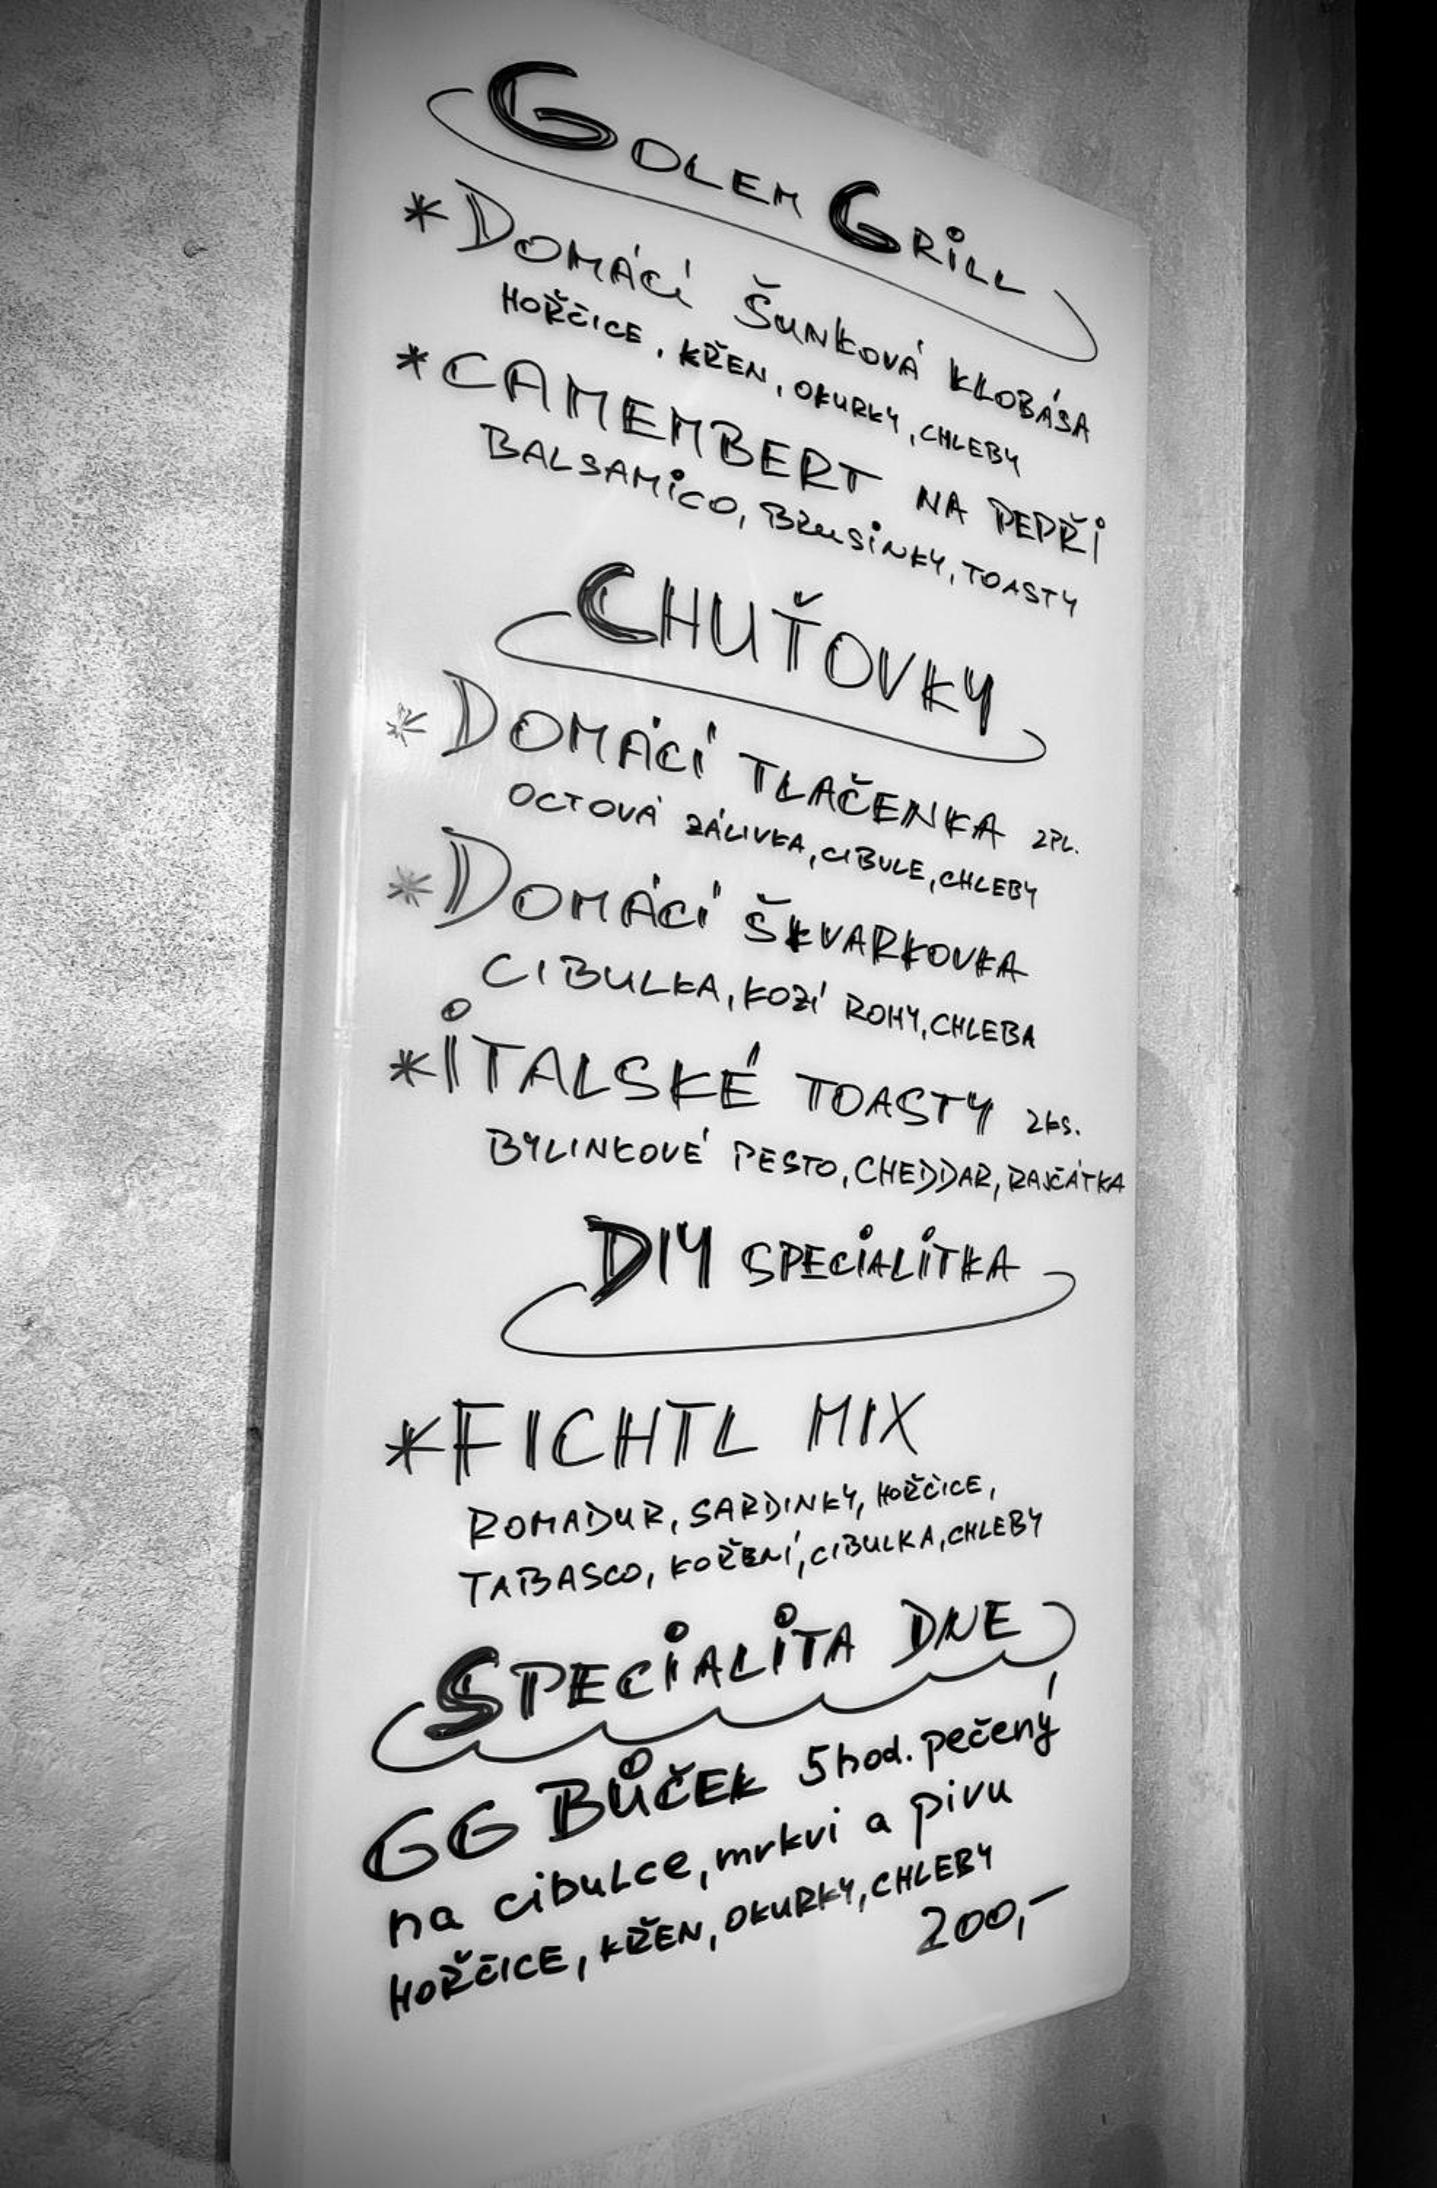 GOLEM GRILL
* DOMÁCÍ ŠUNKOVÁ KLOBÁSA
HOŘČICE, KŘEN, OKURKY, CHLEBY
* CAMEMBERT NA PEPŘI
BALSAMICO, BRUSINKY, TOASTY
CHUŤOVKY
* DOMÁCÍ TLAČENKA 2PL.
OCTOVÁ ZÁLIVKA, CIBULE, CHLEBY
* DOMÁCÍ ŠKVARKOVKA
CIBULKA, KOZÍ ROHY, CHLEBA
* ITALSKÉ TOASTY 2KS.
BYLINKOVÉ PESTO, CHEDDAR, RAJČÁTKA
DIY SPECIALITKA
* FICHTL MIX
ROMADUR, SARDINKY, HOŘČICE,
TABASCO, KOŘENÍ, CIBULKA, CHLEBY
SPECIALITA DNE
GG BŮČEK 5hod. pečený
na cibulce, mrkvi a pivu
HOŘČICE, KŘEN, OKURKY, CHLEBY
200,-